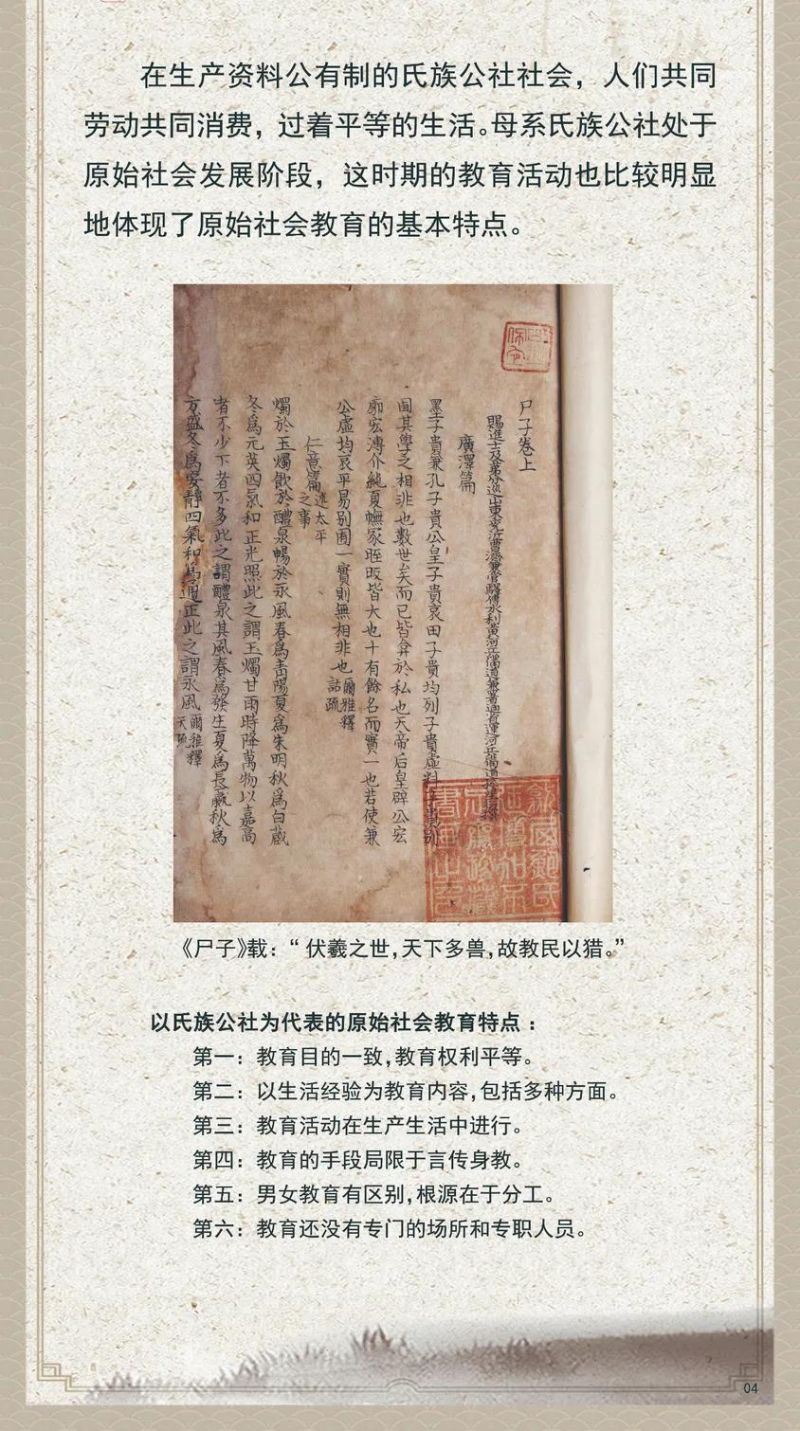 在生产资料公有制的氏族公社社会，人们共同
劳动共同消费，过着平等的生活。母系氏族公社处于
原始社会发展阶段，这时期的教育活动也比较明显
地体现了原始社会教育的基本特点。
尸子卷上
廣澤篇
墨子貴兼孔子貴公皇子貴衷田子貴均列子貴虛料子貴別
囿其學之相非也數世矣而已皆弇於私也天帝后皇辟公宏
廓宏溥介純夏幠冢晊昄皆大也十有餘名而實一也若使兼
公虛均衷平易別囿一實則無相非也 爾雅釋詁疏
仁意篇 述太平之事
燭於玉燭飲於醴泉暢於永風春為青陽夏為朱明秋為白藏
冬為元英四氣和正光照此之謂玉燭甘雨時降萬物以嘉高
者不少下者不多此之謂醴泉其風春為發生夏為長嬴秋為
方盛冬為安靜四氣和為通正此之謂永風 爾雅釋天疏
《尸子》载：“伏羲之世，天下多兽，故教民以猎。”
以氏族公社为代表的原始社会教育特点：
第一：教育目的一致，教育权利平等。
第二：以生活经验为教育内容，包括多种方面。
第三：教育活动在生产生活中进行。
第四：教育的手段局限于言传身教。
第五：男女教育有区别，根源在于分工。
第六：教育还没有专门的场所和专职人员。
04